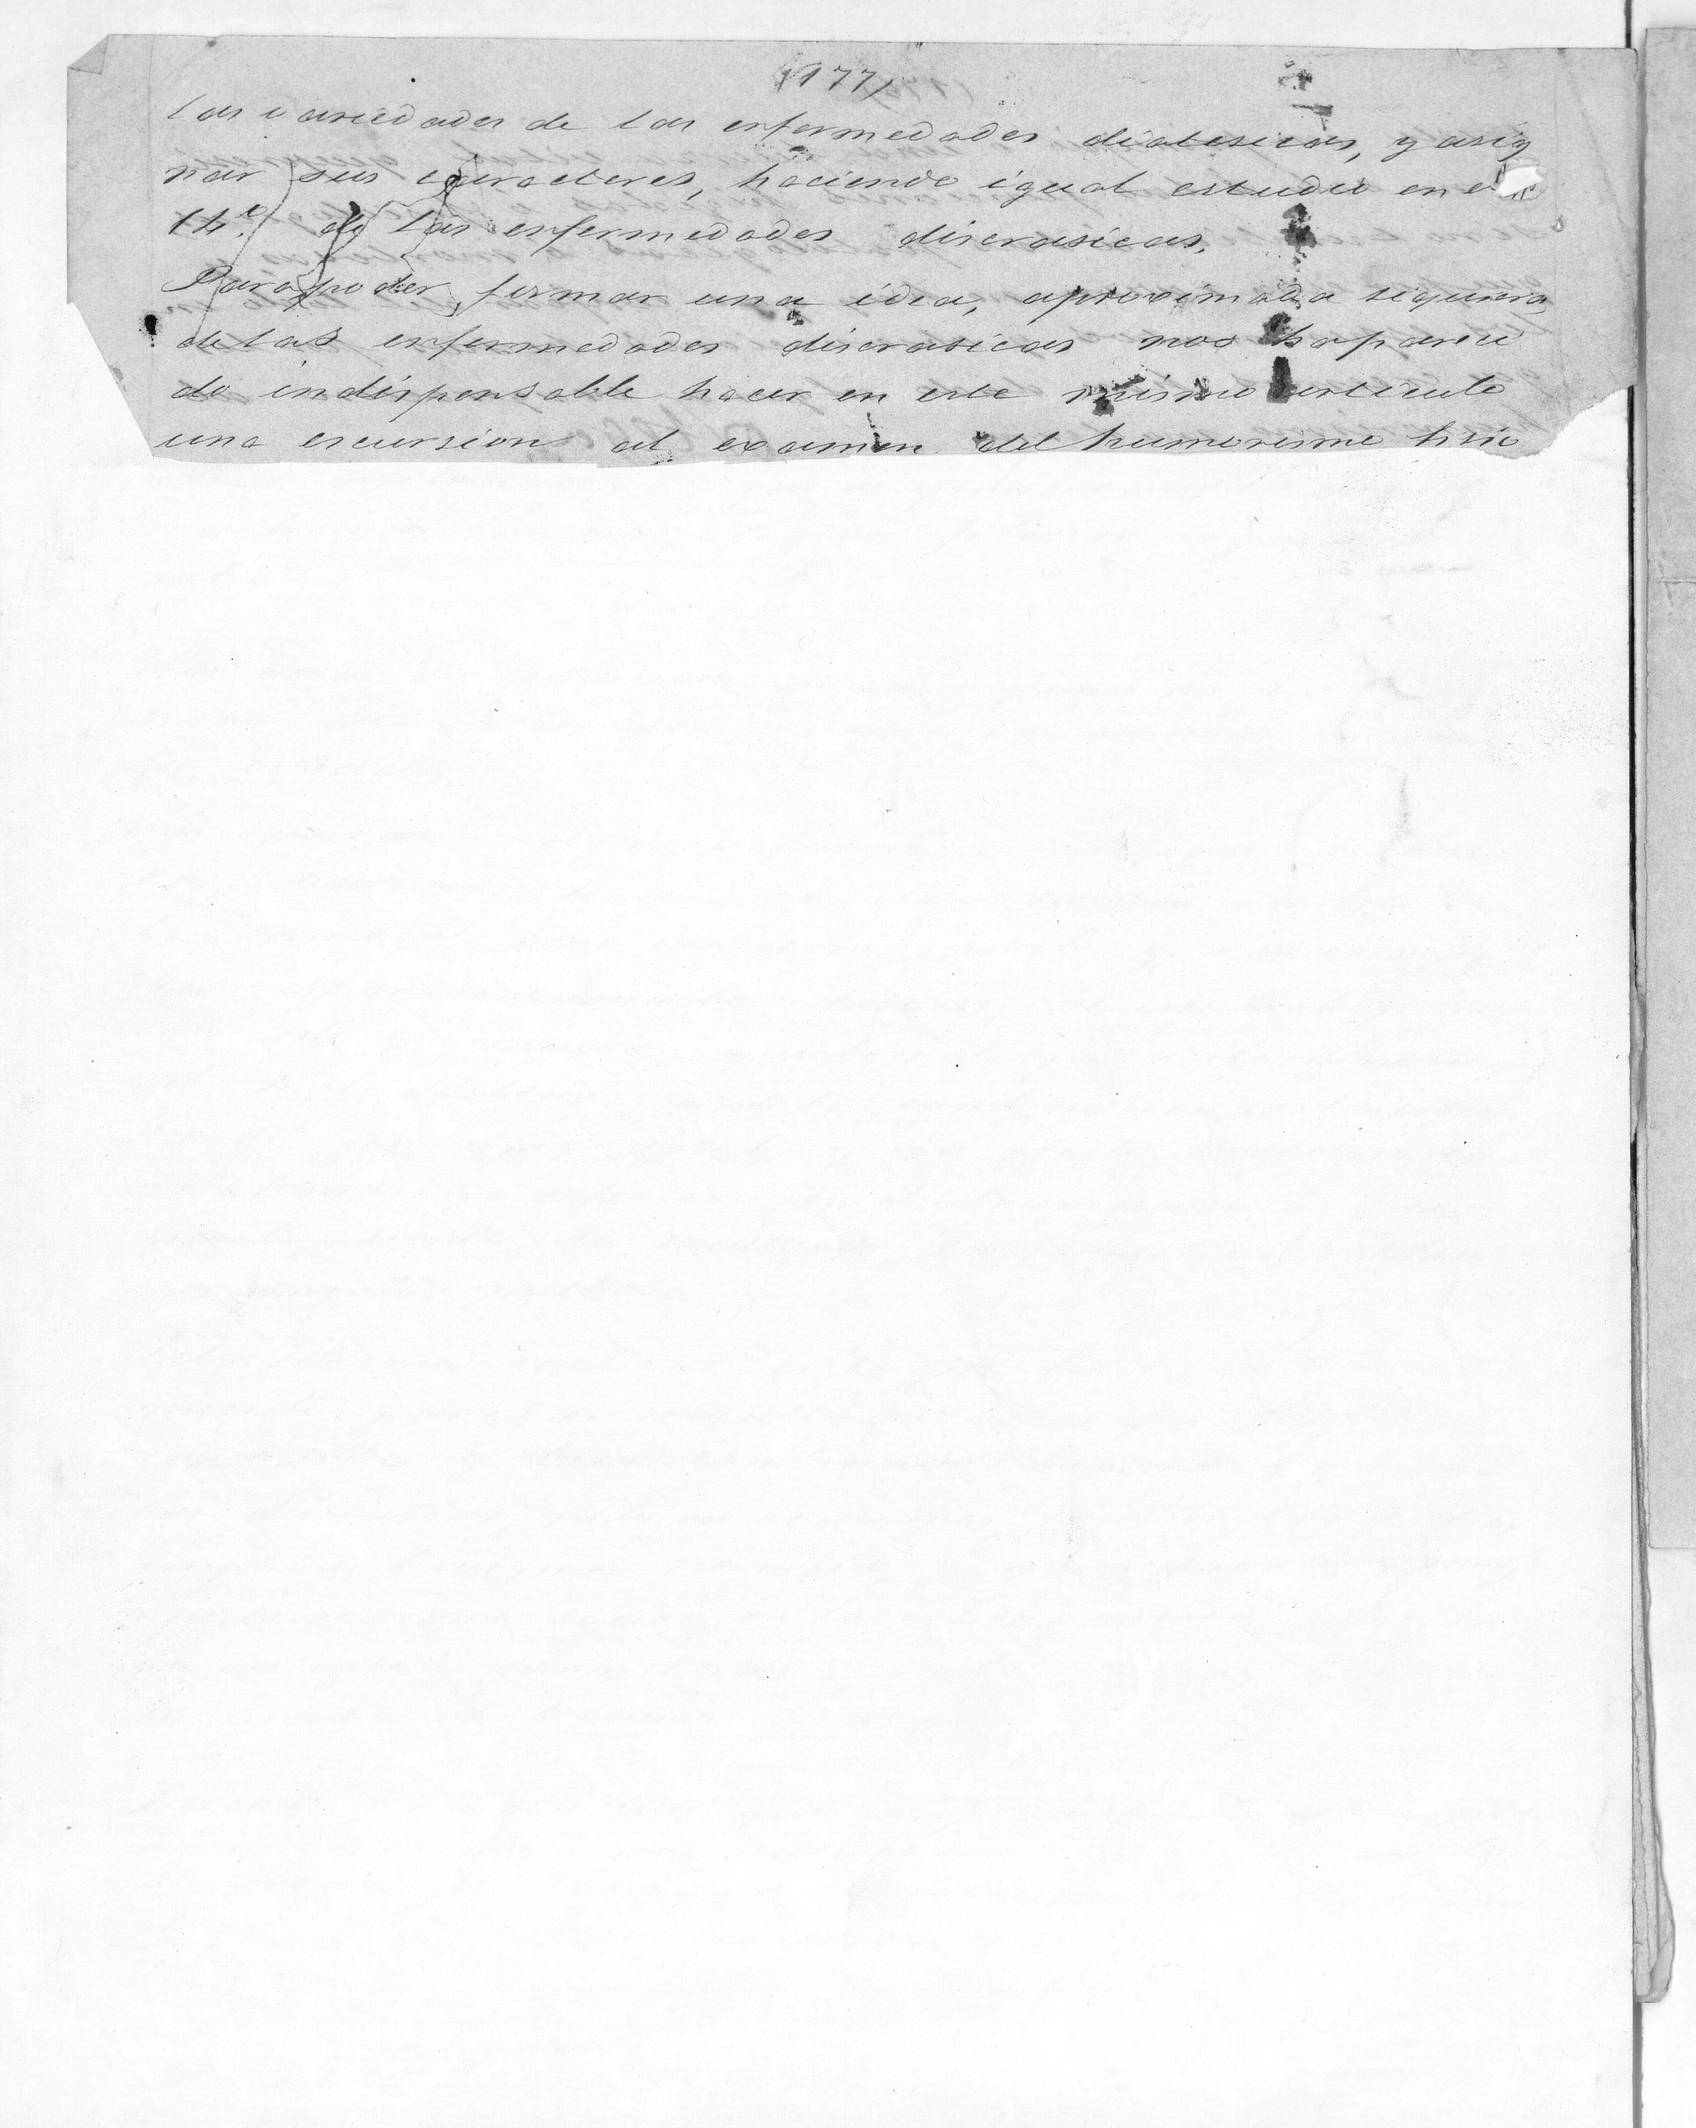 (177)
las variedades de las enfermedades diatesicas, y asig
nar sus caracteres, haciendo igual estudio en el
14.º de las enfermedades discrasicas.
Para poder formar una idea, aproximada siquiera,
de las enfermedades discrasicas nos ha pareci
do indispensable hacer en este mismo articulo
una escursion al examen del humorismo hi